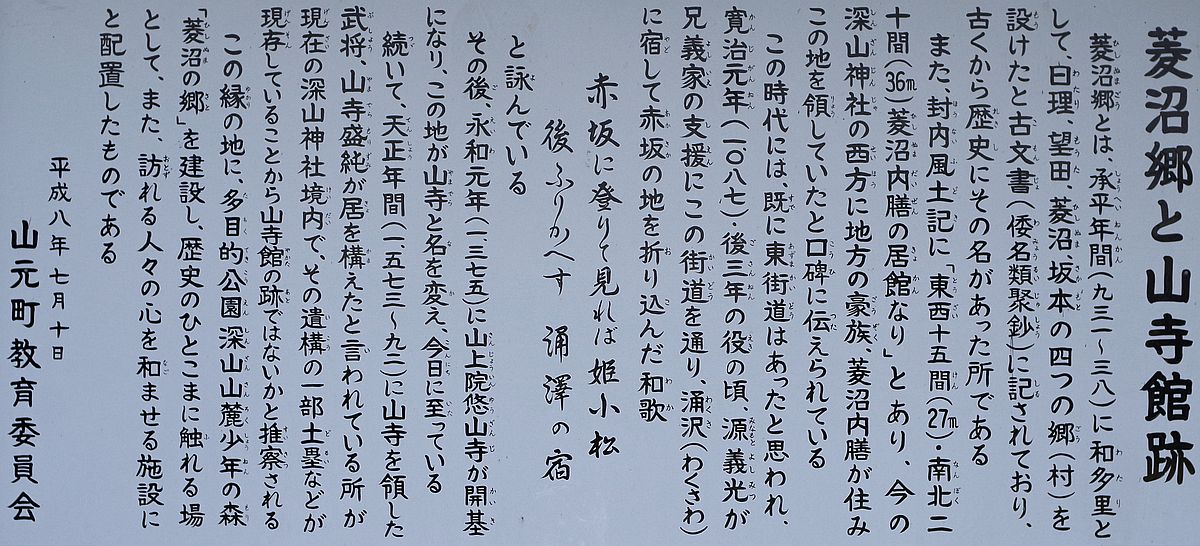 菱沼郷と山寺館跡
菱沼郷とは、承平年間(九三一〜三八)に和多里と
して、曰理、望田、菱沼、坂本の四つの郷(村)を
設けたと古文書(倭名類聚鈔)に記されており、
古くから歴史にその名があった所である
また、封内風土記に「東西十五間(27m)・南北二
十間(36m)菱沼内膳の居館なり」とあり、今の
深山神社の西方に地方の豪族、菱沼内膳が住み
この地を領していたと口碑に伝えられている
この時代には、既に東街道はあったと思われ、
寛治元年(一〇八七)・後三年の役の頃、源義光が
兄義家の支援にこの街道を通り、涌沢(わくさわ)
に宿して赤坂の地を折り込んだ和歌
赤坂に登りて見れば姫小松
後ふりかへす 涌澤の宿
と詠んでいる
その後、永和元年(一三七五)に山上院悠山寺が開基
になり、この地が山寺と名を変え、今日に至っている
続いて、天正年間(一五七三〜九二)に山寺を領した
武将、山寺盛純が居を構えたと言われている所が
現在の深山神社境内で、その遺構の一部土塁などが
現存していることから山寺館の跡ではないかと推察される
この縁の地に、多目的公園深山山麓少年の森
「菱沼の郷」を建設し、歴史のひとこまに触れる場
として、また、訪れる人々の心を和ませる施設に
と配置したものである
平成八年七月十日
山元町教育委員会